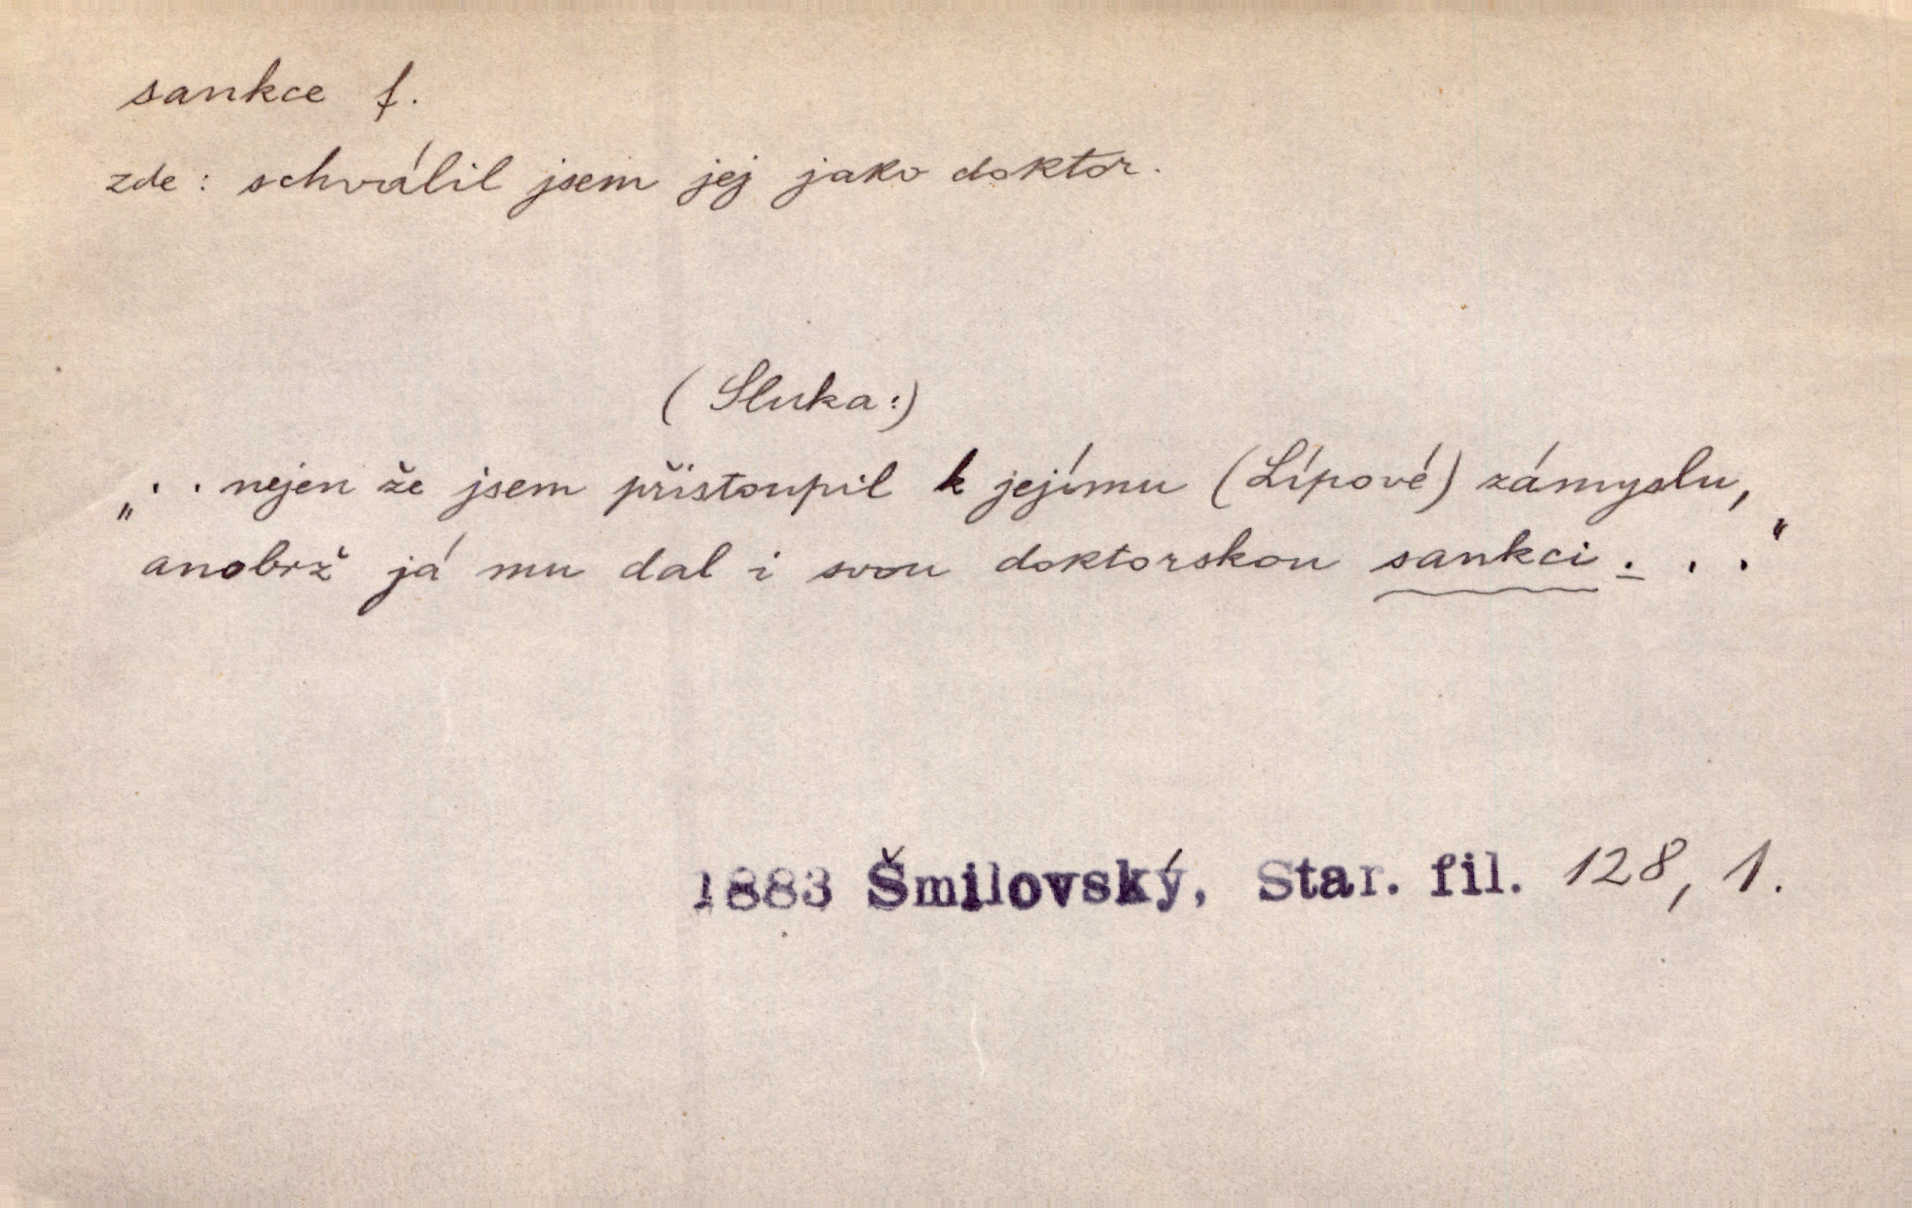 sankce f.
zde: schválil jsem jej jako doktor.
(Sluka:)
„. . nejen že jsem přistoupil k jejímu (Lípové) zámyslu,
anobrž já mu dal i svou doktorskou sankci . . .“
1883 Šmilovský, Star. fil. 128, 1.